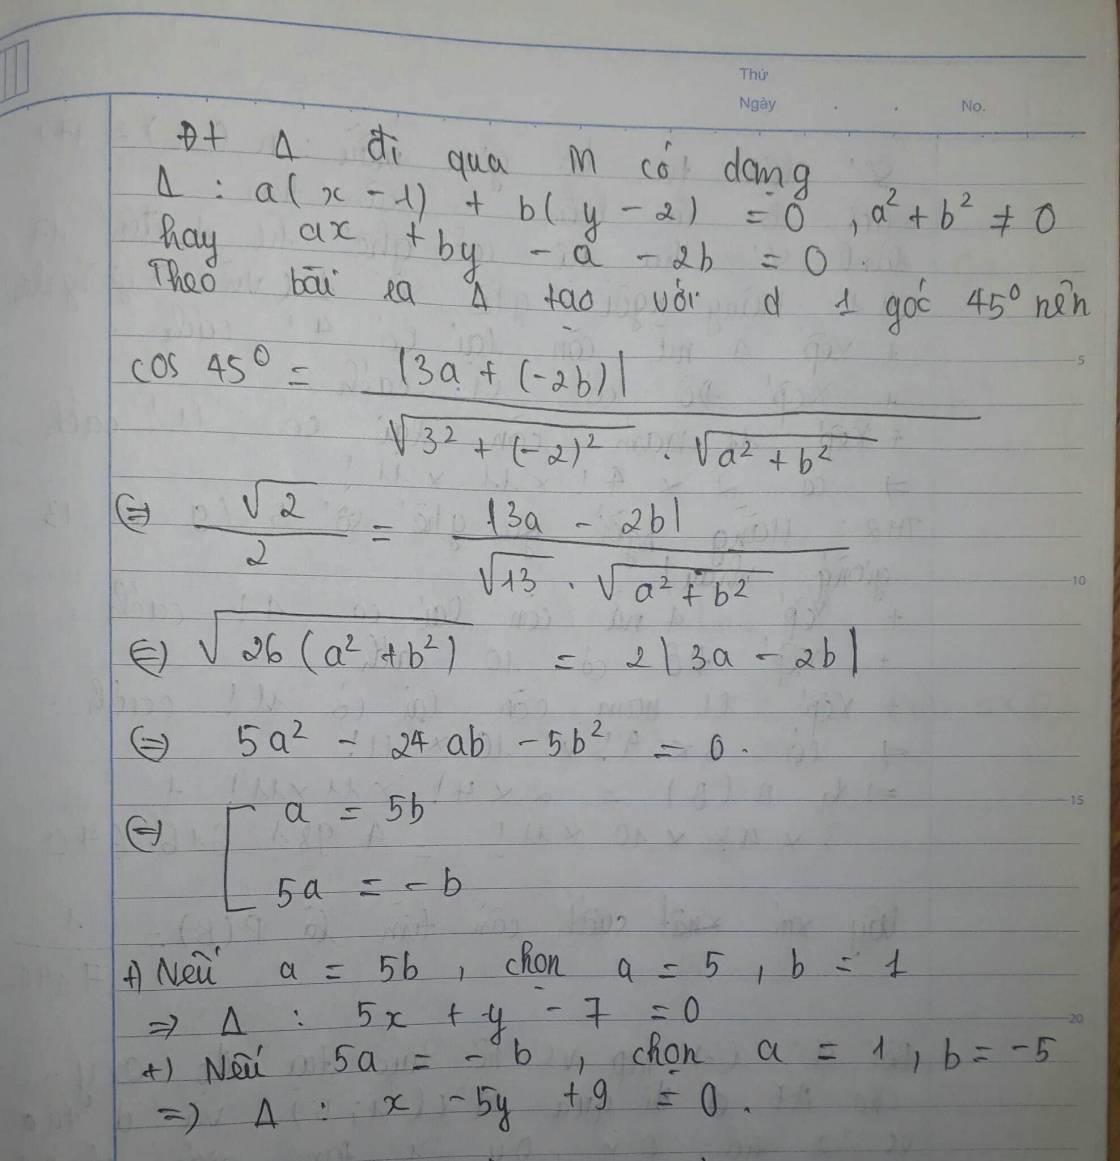 Thứ
Ngày . . No.
Đt Δ đi qua M có dạng
Δ : a(x - 1) + b(y - 2) = 0 , a² + b² ≠ 0
hay ax + by - a - 2b = 0.
Theo bài ra Δ tạo với d 1 góc 45° nên
cos 45° = |3a + (-2b)| / √(3² + (-2)²) . √(a² + b²)
5
⇔ √2 / 2 = |3a - 2b| / √13 . √(a² + b²)
10
⇔ √(26(a² + b²)) = 2|3a - 2b|
⇔ 5a² - 24ab - 5b² = 0.
15
⇔ [ a = 5b
5a = -b
+) Nếu a = 5b , chọn a = 5 , b = 1
⇒ Δ : 5x + y - 7 = 0
20
+) Nếu 5a = -b , chọn a = 1 , b = -5
⇒ Δ : x - 5y + 9 = 0.